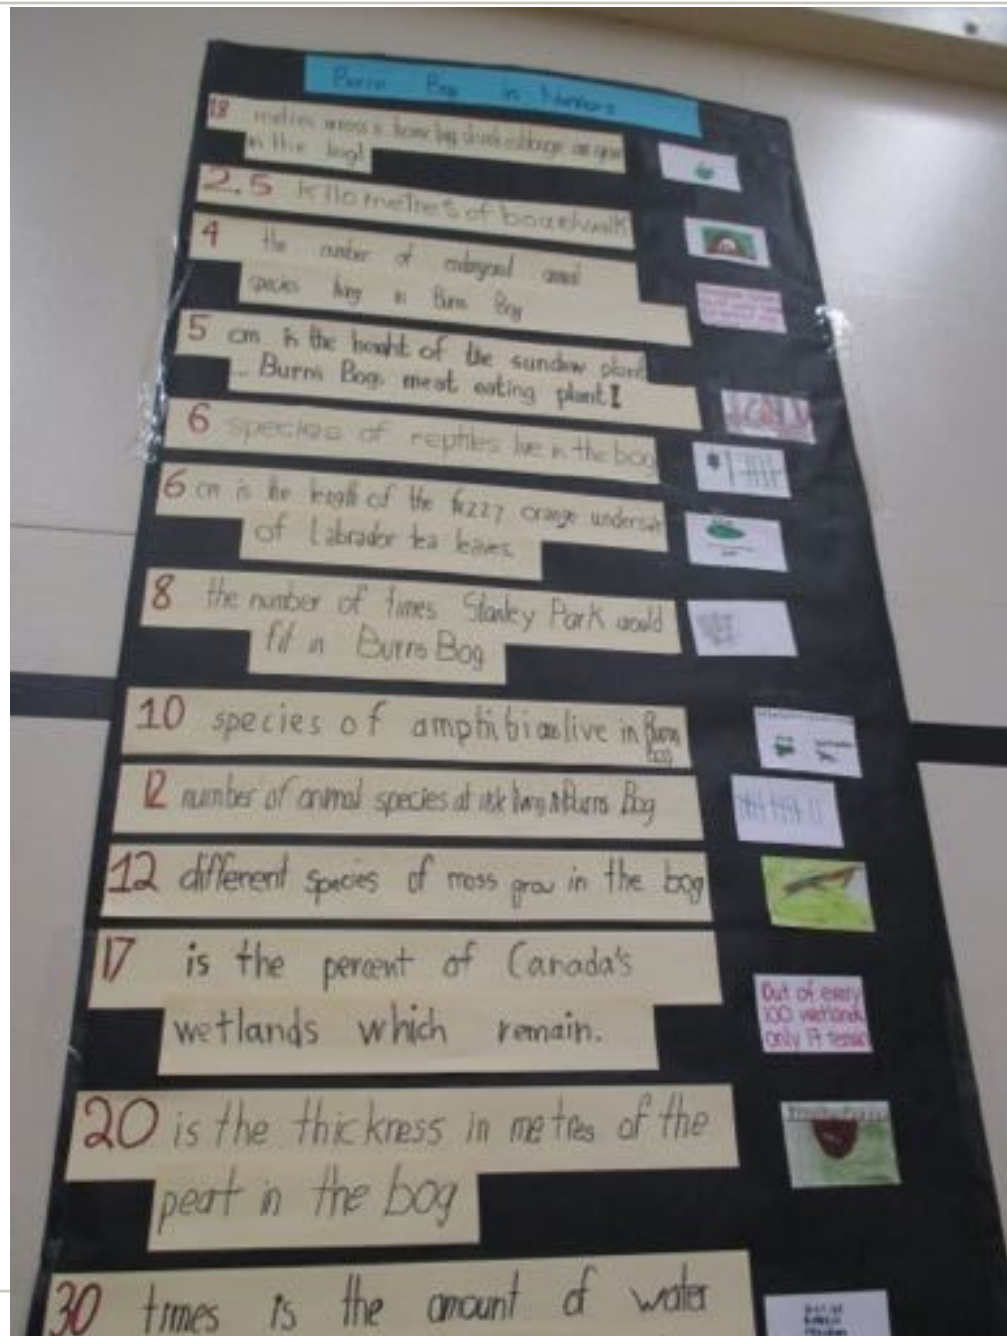 Burns Bog in Numbers
metres across is how big skunk cabbage can grow
in the bog!
2.5 kilometres of boardwalk
4 the number of endangered animal
species living in Burns Bog
5 cm is the height of the sundew plant
... Burns Bogs meat eating plant!
6 species of reptiles live in the bog
6 cm is the length of the fuzzy orange
of Labrador tea leaves.
8 the number of times Stanley Park would
fit in Burns Bog
10 species of amphibians live in Burns
Bog
12 number of animal species at risk living in Burns Bog
12 different species of moss grow in the bog
17 is the percent of Canada's
wetlands which remain.
Out of every
100 wetlands
only 17 remain
20 is the thickness in metres of the
peat in the bog
30 times is the amount of water